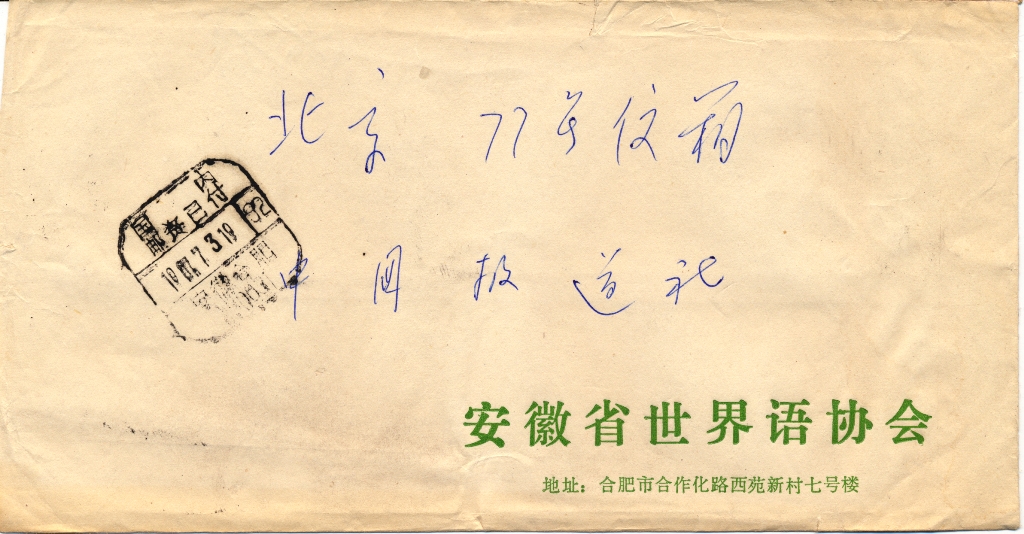 北京 77号信箱
国内
邮资已付
1987.7.3.19
92
安徽合肥
中国报道社
安徽省世界语协会
地址：合肥市合作化路西苑新村七号楼